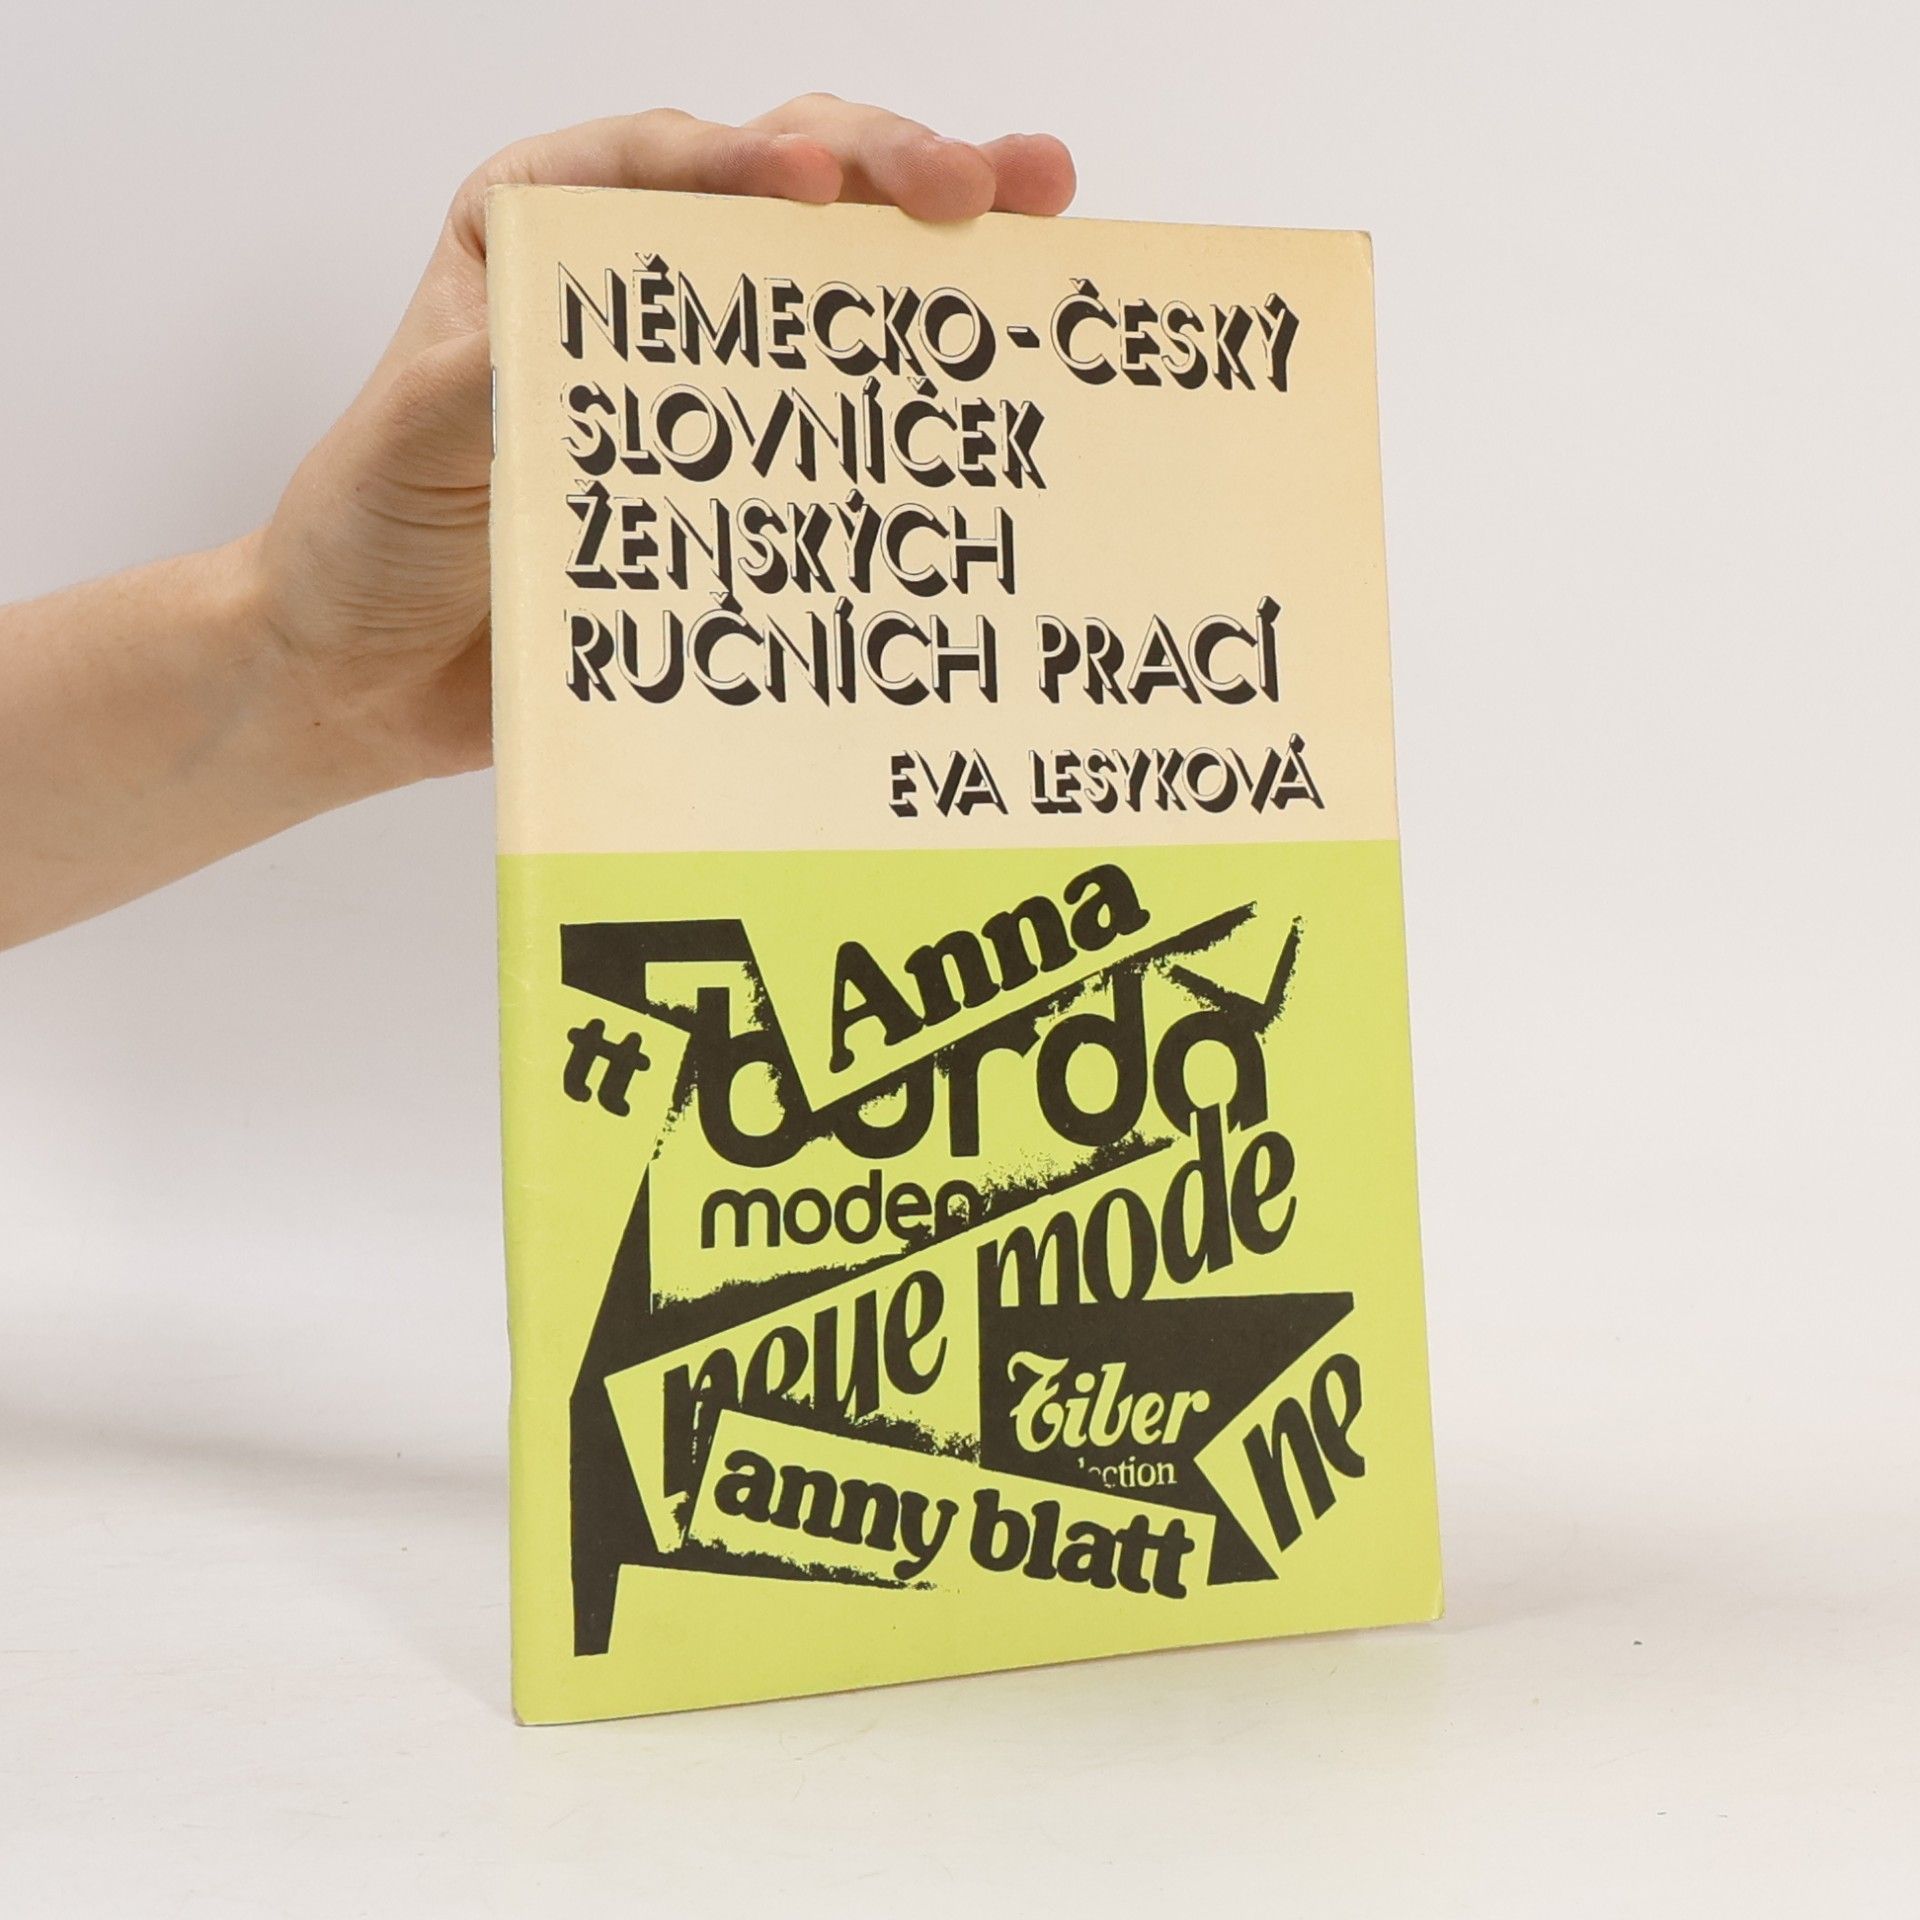 NĚMECKO-ČESKÝ
SLOVNÍČEK
ŽENSKÝCH
RUČNÍCH PRACÍ
EVA LESYKOVÁ
Anna
tt
burda
moden
neue mode
Tiber
ne
anny blatt